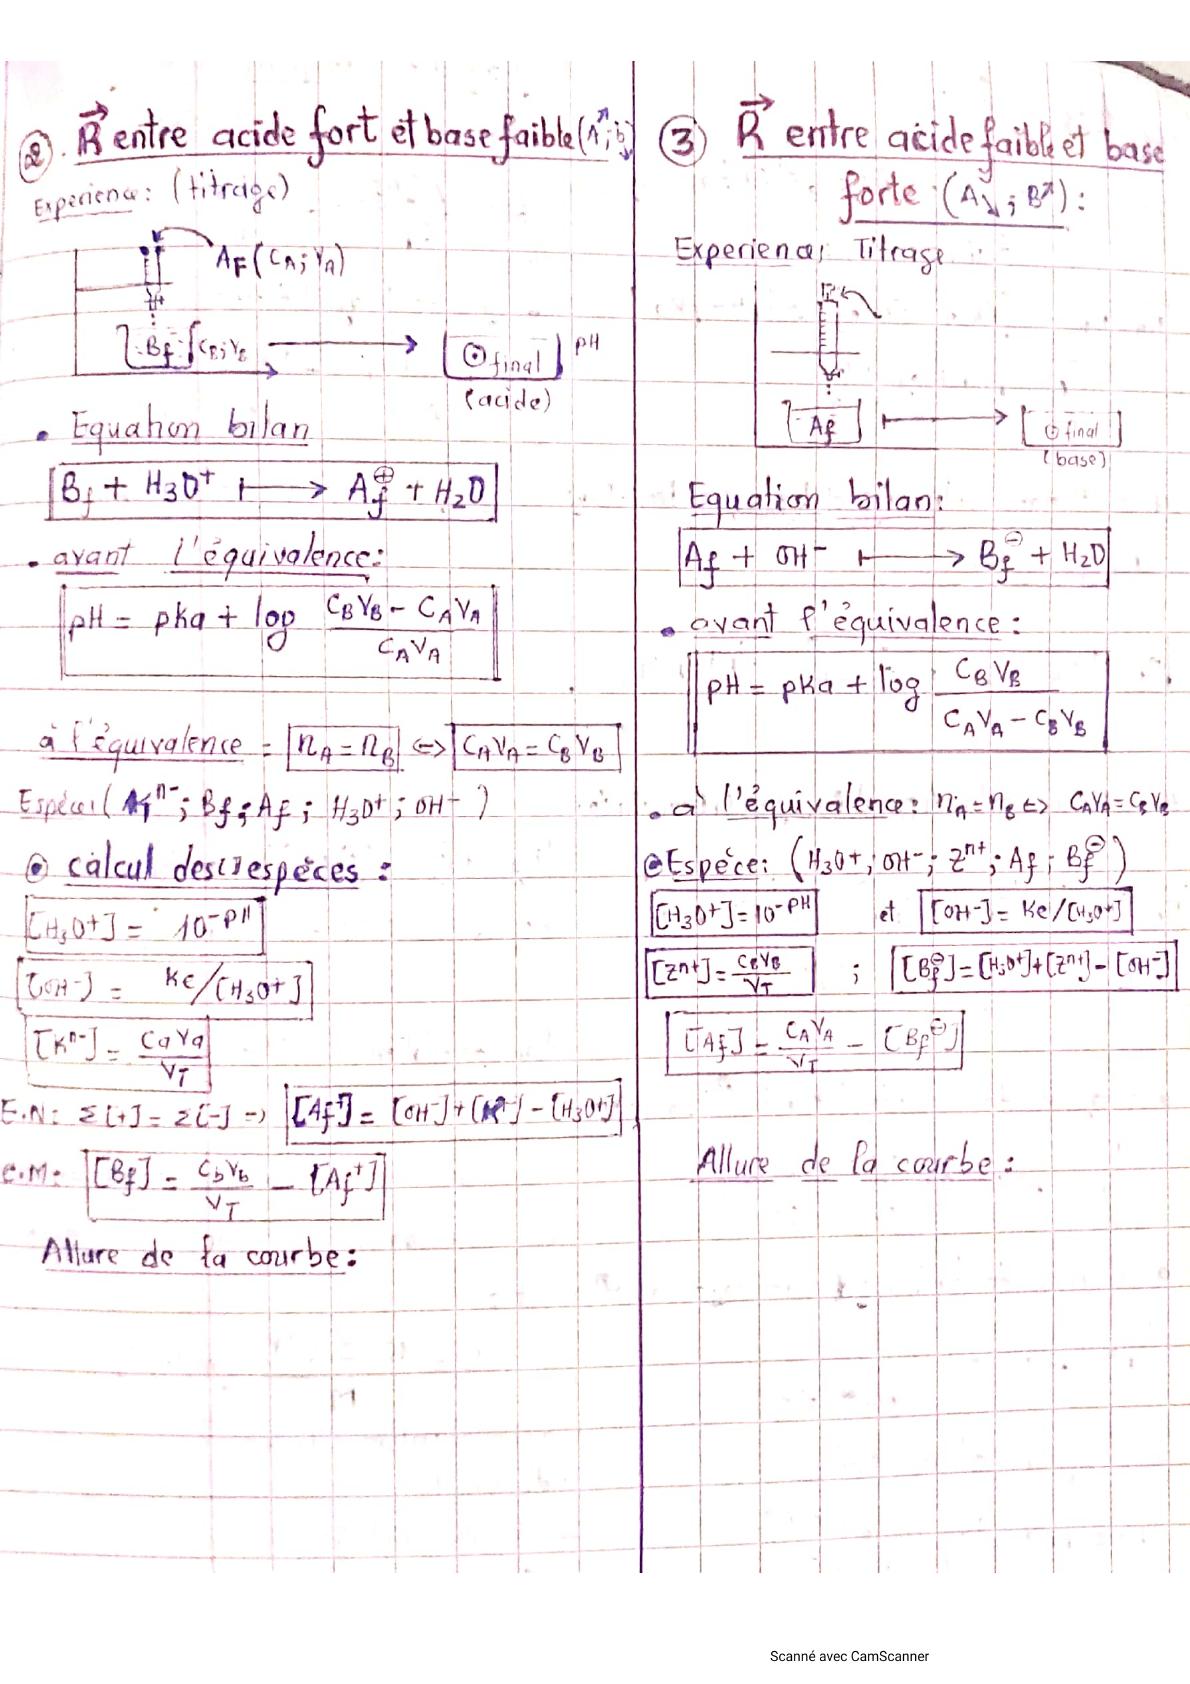 ② R⃗ entre acide fort et base faible (A↗; b↘)
Experience: (titrage)
AF (CA; VA)
Bf CB; VB → ⊙ final pH
(acide)
• Equation bilan
Bf + H3O+ ⟼ Af⊕ + H2O
• avant l'équivalence:
pH = pka + log (CBVB - CAVA) / (CAVA)
à l'équivalence = nA = nB ⇔ CAVA = CBVB
; Bf; Af; H3O+; OH-)
⊙ calcul des espéces :
[H3O+] = 10-pH
[OH-] = Ke/[H3O+]
[Kn-] = CaVa / VT
E.N: Σ[+] = Σ[-] => [Af+] = [OH-] + [Kn-] - [H3O+]
C.M: [Bf] = CbVb / VT - [Af+]
Allure de la courbe:
③ R⃗ entre acide faible et base
forte (A↘; B↗):
Experience; Titrage
Af ⟼ ⊙ final
(base)
Equation bilan:
Af + OH- ⟼ Bf⊖ + H2O
• avant l'équivalence:
pH = pKa + log CBVB / (CAVA - CBVB)
• à l'équivalence: nA = nB ⇔ CAVA = CBVB
⊙ Espéce: (H3O+; OH-; Zn+; Af; Bf⊖)
[H3O+] = 10-PH et [OH-] = Ke/[H3O+]
[Zn+] = CBVB / VT ; [Bf⊖] = [H3O+] + [Zn+] - [OH-]
[Af] = CAVA / VT - [Bf⊖]
Allure de la courbe:
Scanné avec CamScanner